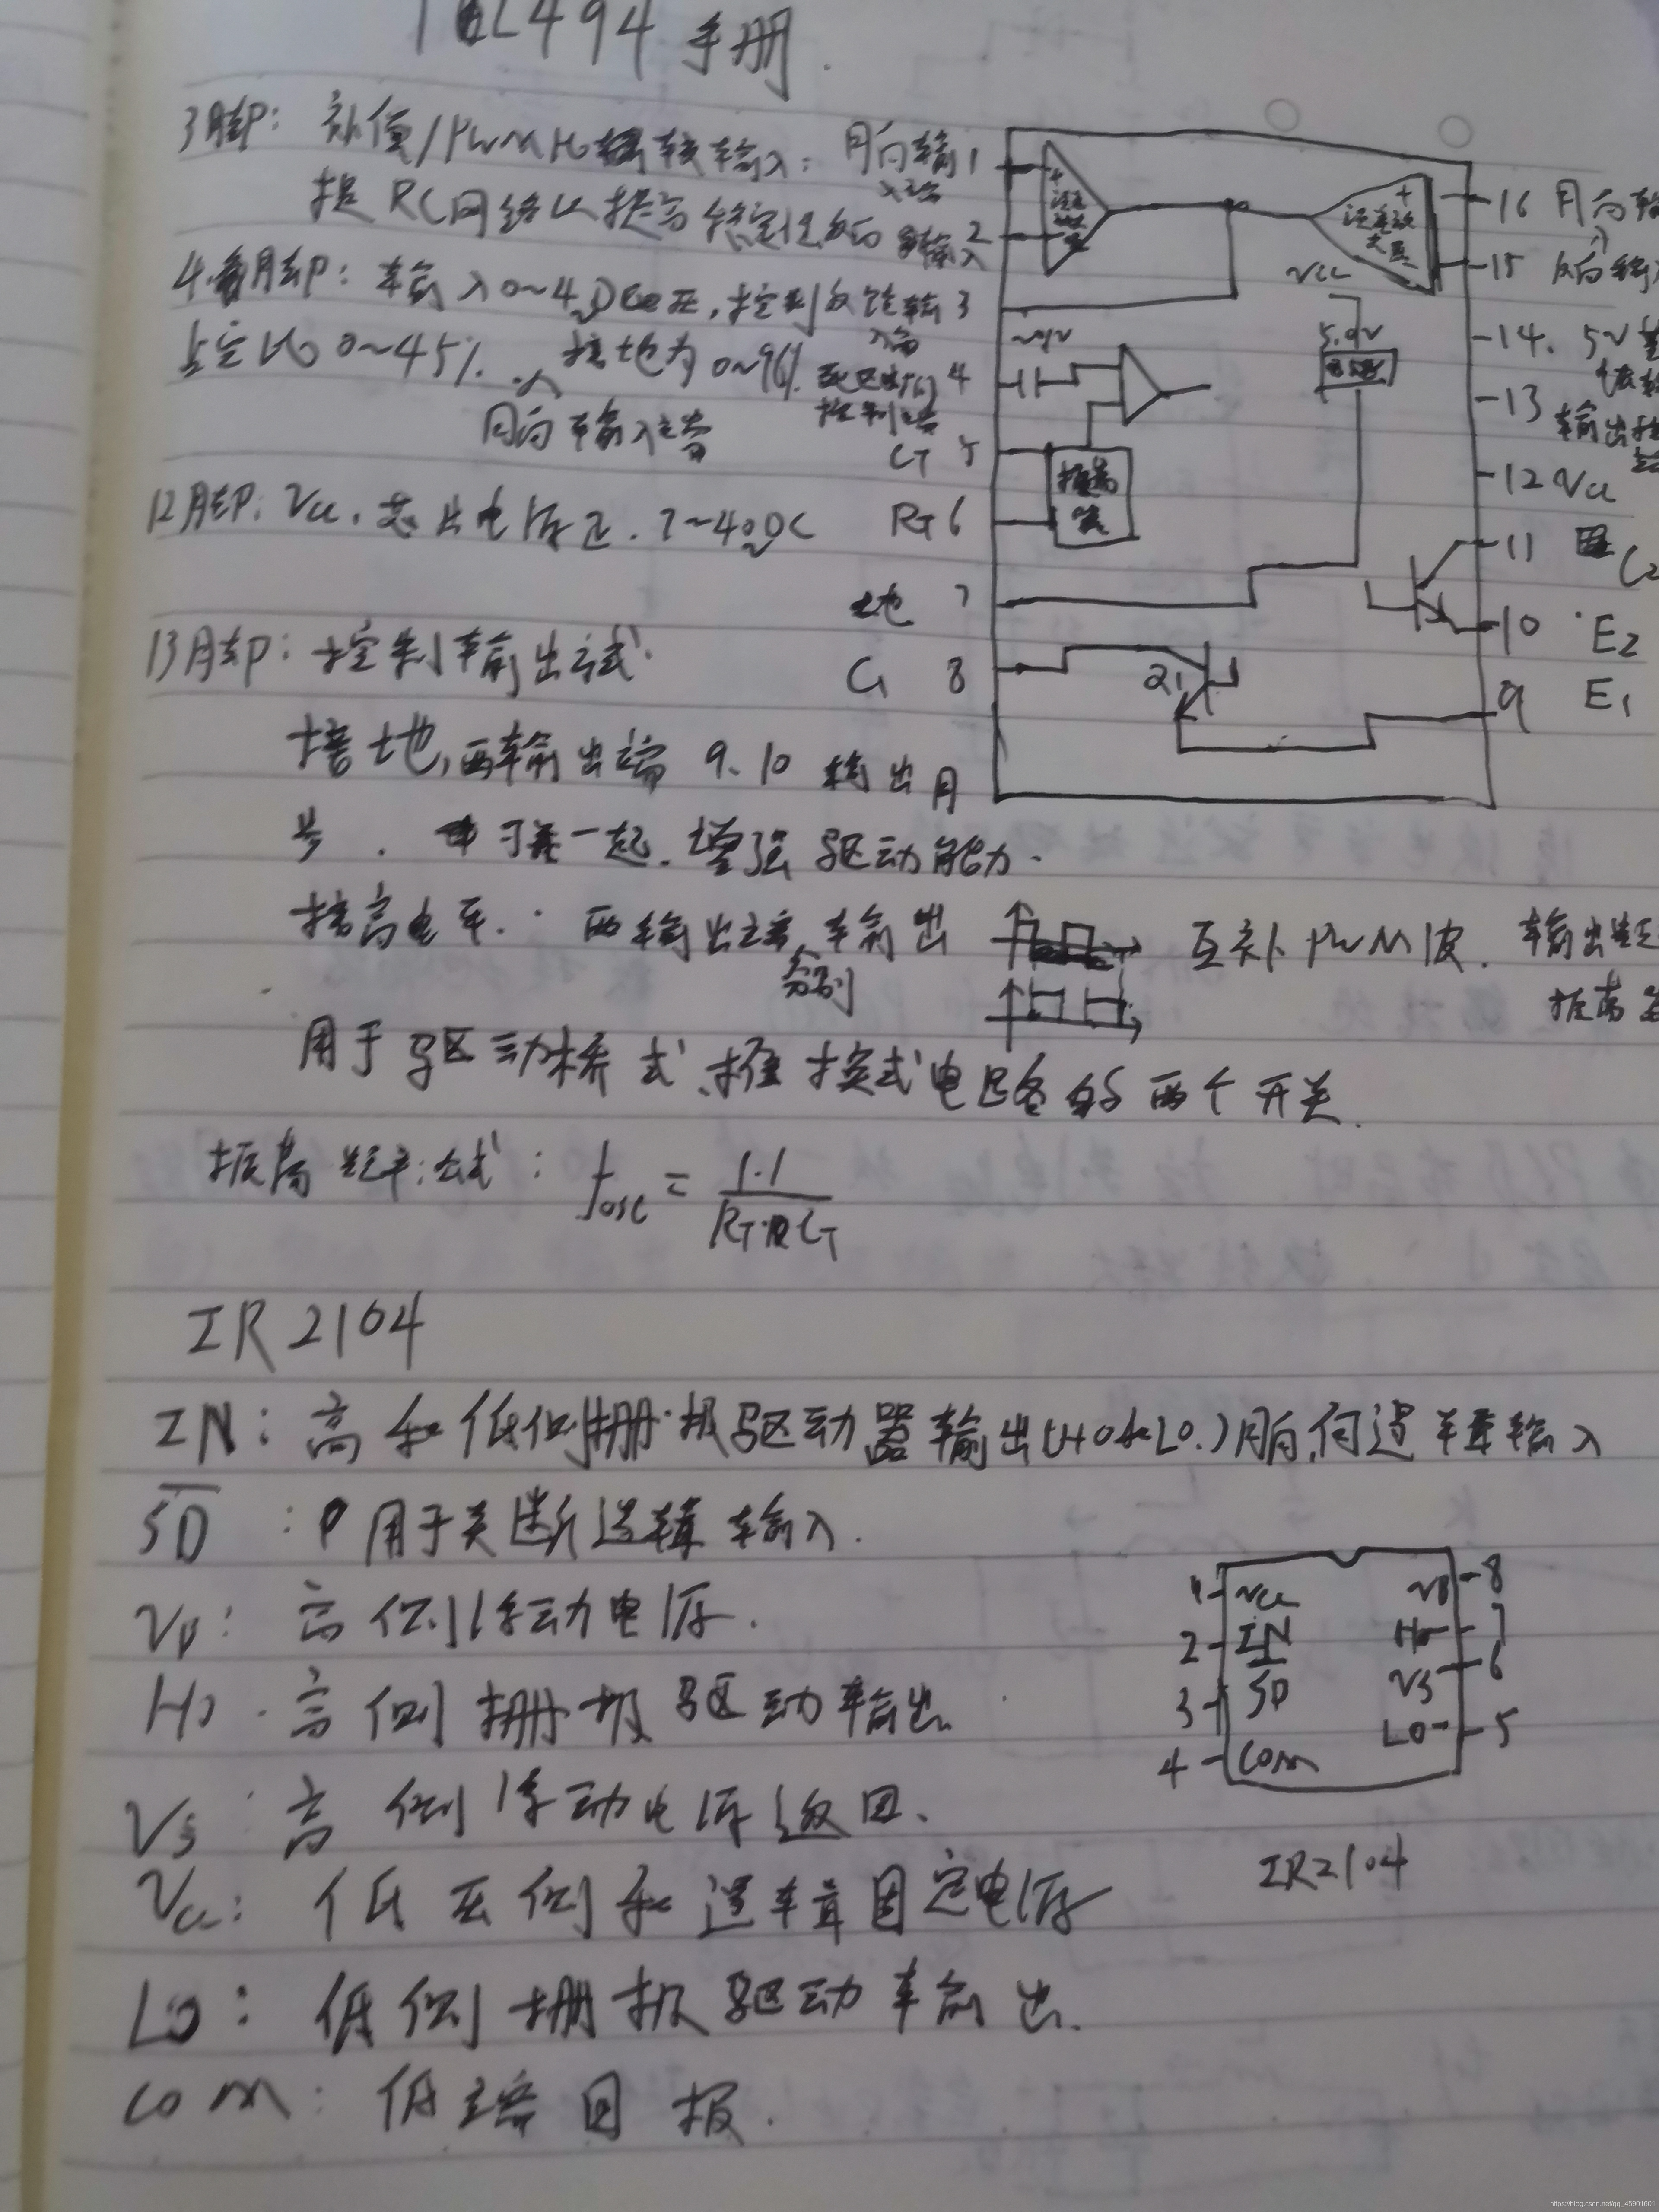 TL494 手册.
3脚: 补偿/PWM比较输入:
接RC网络以提高稳定性
4脚: 输入0~4VDC电压, 控制
占空比0~45%. 接地为0~96%.
同向输入端
12脚: Vcc. 芯片电源正. 7~40VDC
13脚: 控制输出方式.
接地,两输出端 9、10 输出同
步. 可并一起. 增强驱动能力.
接高电平. 两输出端分别输出
互补PWM波. 输出
用于驱动桥式、推挽式电路的两个开关.
振荡频率公式: fosc = 1.1 / RT·CT
同向输入端 1
反向输入 2
反馈输入端 3
死区时间控制端 4
CT 5
RT 6
地 7
C1 8
16 同向输
15 反向输
14. 5V
13 输出控
12 Vcc
11 C2
10 E2
9 E1
误差放大器
Vcc
5.0V
振荡器
Q1
IR2104
IN: 高和低侧栅极驱动器输出(HO和LO.)同向,逻辑输入
SD : 用于关断逻辑输入.
VB: 高侧浮动电源.
HO. 高侧栅极驱动输出.
VS: 高侧浮动电源返回.
Vcc: 低压侧和逻辑固定电源
LO: 低侧栅极驱动输出.
COM: 低端回报.
1 Vcc VB 8
2 IN HO 7
3 SD VS 6
4 COM LO 5
IR2104
https://blog.csdn.net/qq_45901601